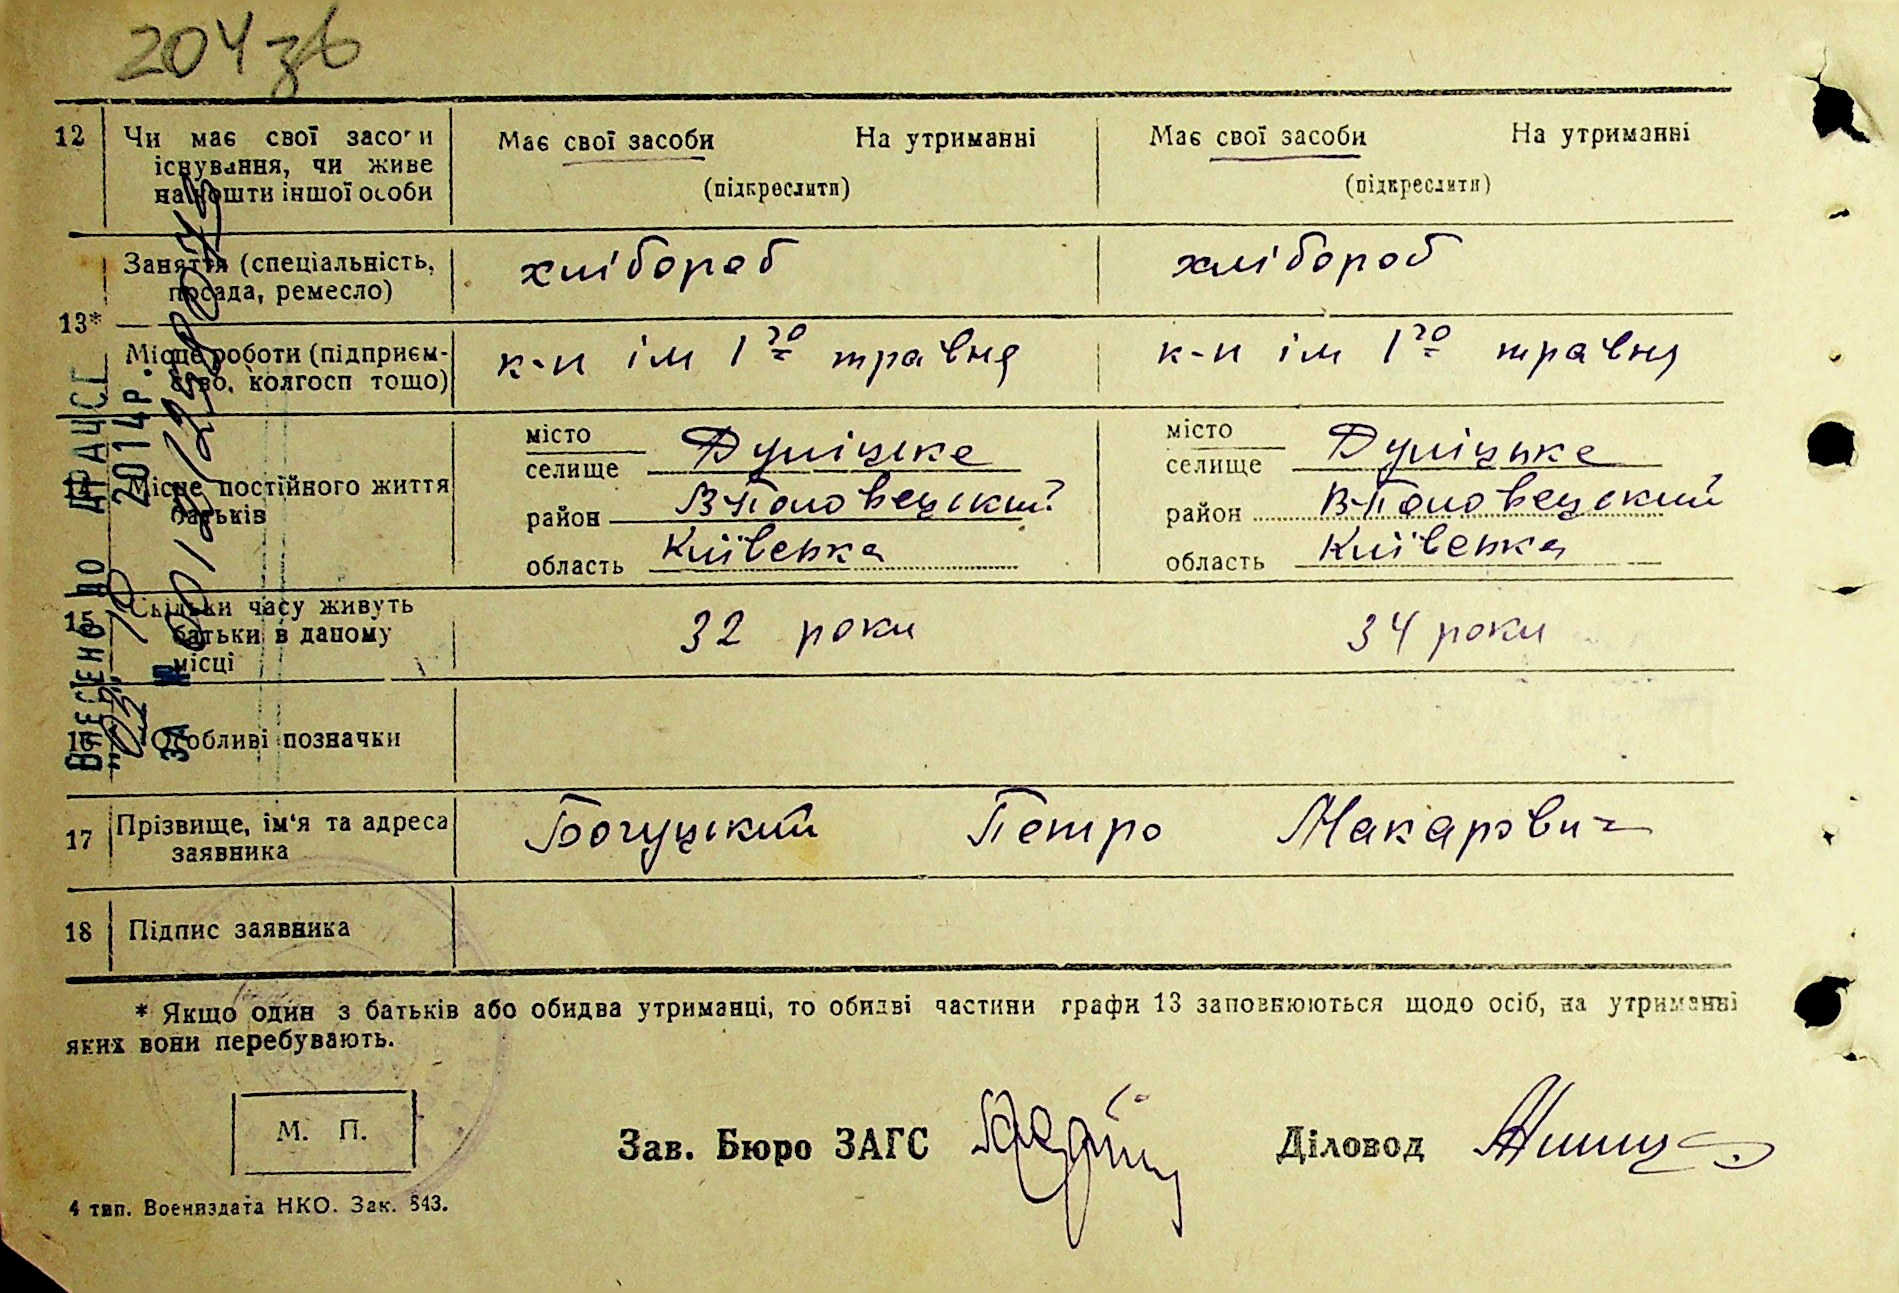 204 зв
12 Чи має свої засоби Має свої засоби На утриманні Має свої засоби На утриманні
існування, чи живе
на кошти іншої особи (підкреслити) (підкреслити)
Заняття (спеціальність, хлібороб хлібороб
посада, ремесло)
13*
Місце роботи (підприєм- к-п ім 1го травня к-п ім 1го травня
ство, колгосп тощо)
місто Дуліцьке місто Дуліцьке
селище селище
14 Місце постійного життя район В-Половецький район В-Половецький
батьків
область Київська область Київська
15 Скільки часу живуть 32 роки 34 роки
батьки в даному
місці
16 Особливі позначки
17 Прізвище, ім'я та адреса Богуцький Петро Макарович
заявника
18 Підпис заявника
* Якщо один з батьків або обидва утриманці, то обидві частини графи 13 заповнюються щодо осіб, на утриманні
яких вони перебувають.
М. П.
Зав. Бюро ЗАГС Діловод
4 тип. Воениздата НКО. Зак. 843.
ВНЕСЕНО ДО ДРАЦСГ
2014р.
ЗА №